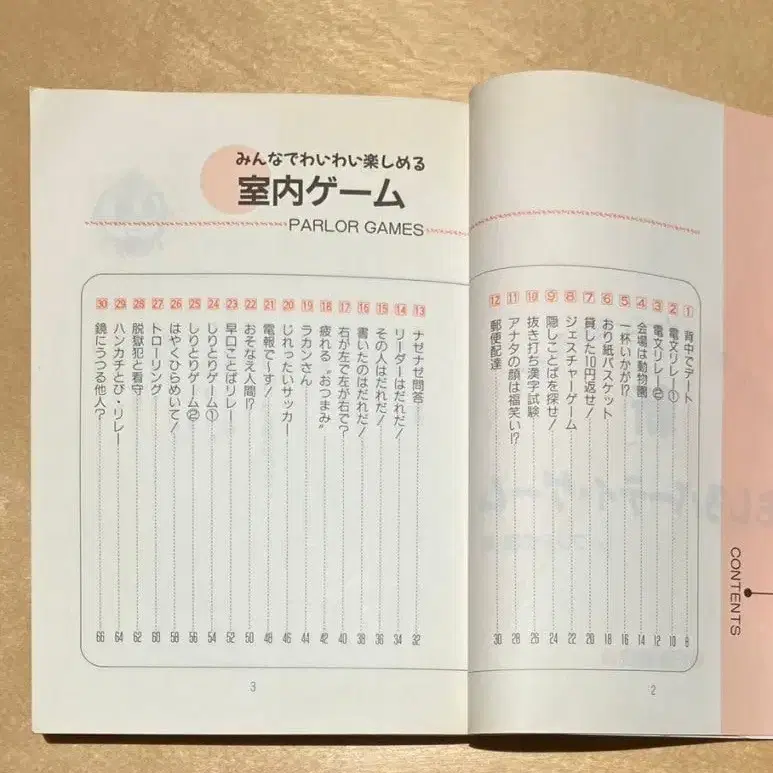 CONTENTS
1 背中でデート 8
2 電文リレー① 10
3 電文リレー② 12
4 会場は動物園 14
5 一杯いかが!? 16
6 おり紙バスケット 18
7 貸した10円返せ! 20
8 ジェスチャーゲーム 22
9 隠しことばを探せ! 24
10 抜き打ち漢字試験 26
11 アナタの顔は福笑い!? 28
12 郵便配達 30
2
みんなでわいわい楽しめる
室内ゲーム
PARLOR GAMES
13 ナゼナゼ問答 32
14 リーダーはだれだ! 34
15 その人はだれだ! 36
16 書いたのはだれだ! 38
17 右が左で左が右で? 40
18 疲れる〝おつまみ〟 42
19 ラカンさん 44
20 じれったいサッカー 46
21 電報で〜す! 48
22 おそなえ人間!? 50
23 早口ことばリレー 52
24 しりとりゲーム① 54
25 しりとりゲーム② 56
26 はやくひらめいて! 58
27 トローリング 60
28 脱獄犯と看守 62
29 ハンカチとび・リレー 64
30 鏡にうつる他人? 66
3